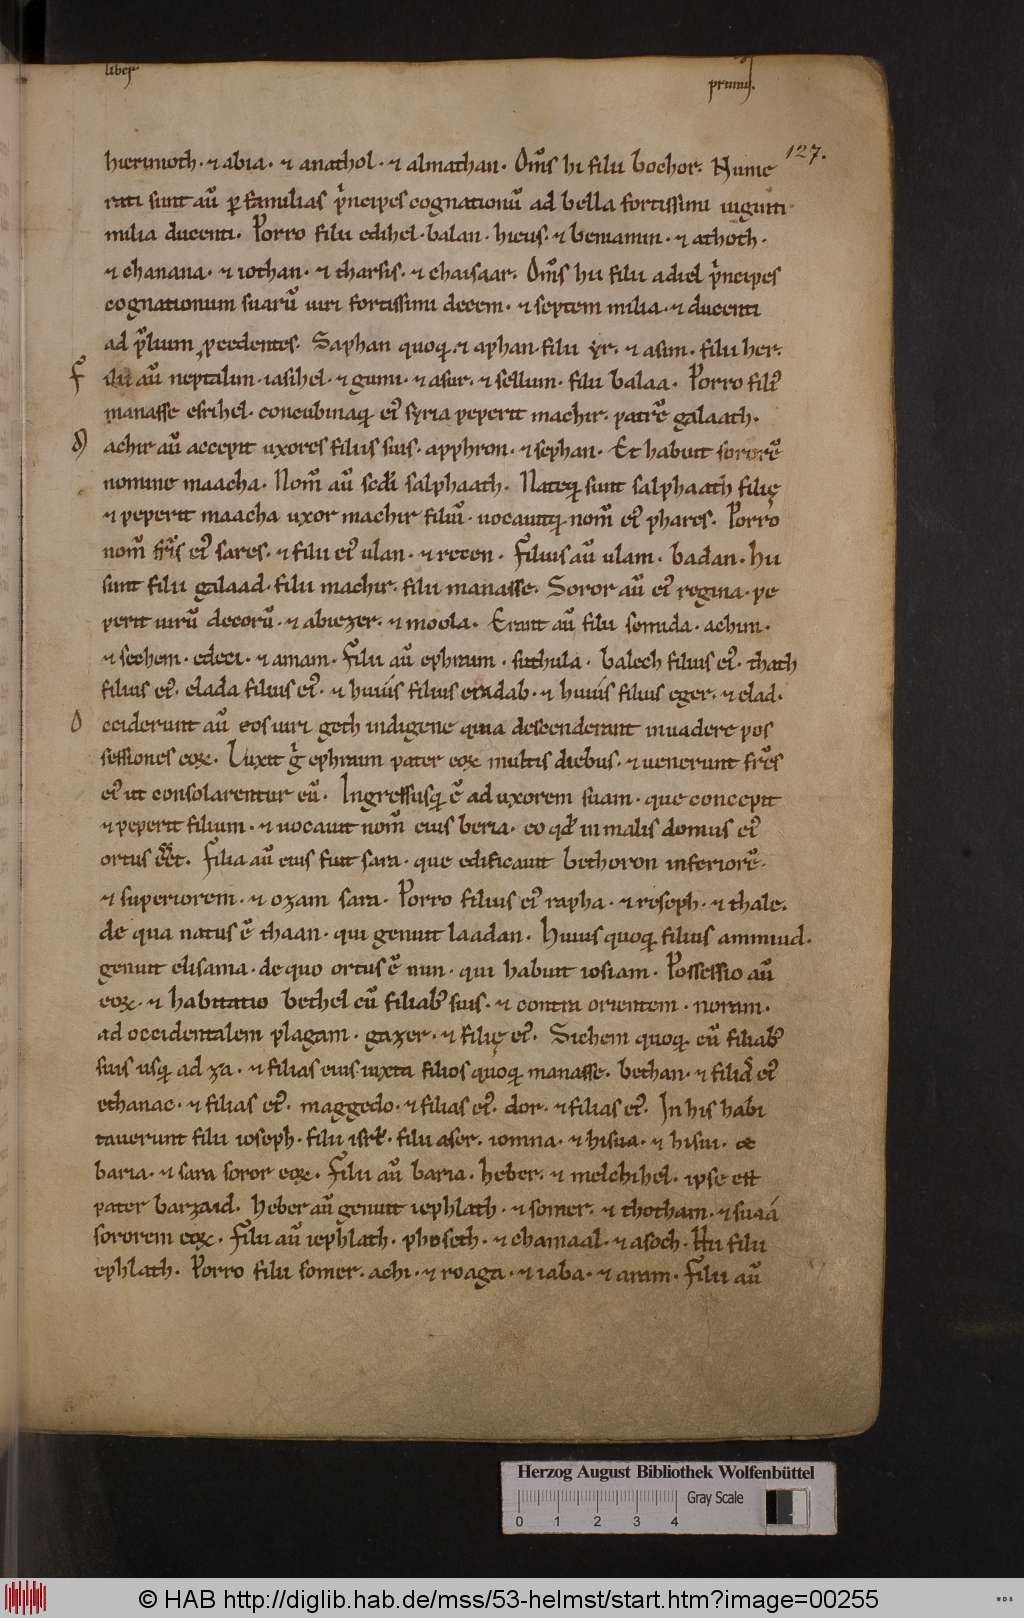 liber
primus.
127.
hierimoth · ⁊ abia · ⁊ anathol · ⁊ almathan · Om̅s hi filii bochor. Nume
rati sunt aū ꝑ familias p'ncipes cognationū ad bella fortissimi uiginti
milia ducenti. Porro filii edihel · balan · hieus · ⁊ beniamin · ⁊ athoth ·
⁊ chanana · ⁊ iothan · ⁊ tharsis · ⁊ chaisaar. Om̅s hii filii adiel p'ncipes
cognationum suarū uiri fortissimi decem · ⁊ septem milia · ⁊ ducenti
ad p̄lium ꝓcedentes. Saphan quoq; ⁊ aphan · filii yr · ⁊ asim · filii her.
F ilii aū neptalim · iasihel · ⁊ guni · ⁊ asur · ⁊ sellum · filii balaa · Porro fili'
manasse esrihel · concubinaq; ei' syria peperit machir · patrē galaath.
M achir aū accepit uxores filiis suis · apphron · ⁊ sephan · Et habuit sororē
nomine maacha · Nom̅ aū scd'i salphaath · Nateq; sunt salphaath filię
⁊ peperit maacha uxor machir filiū · uocauitq; nom̅ ei' phares. Porro
nom̅ fr̄is ei' sares · ⁊ filii ei' ulan · ⁊ recen · Filius aū ulam · badan · hii
sunt filii galaad · filii machir · filii manasse. Soror aū ei' regina · pe
perit uirū decorū · ⁊ abiezer · ⁊ moola. Erant aū filii semida · achim ·
⁊ sechem · edeci · ⁊ amam · Filii aū ephraim · suthula · balech filius ei' · thath
filius ei' · elada filius ei' · ⁊ huius filius ezadab · ⁊ huius filius eger · ⁊ elad ·
O cciderunt aū eos uiri geth indigene quia descenderant inuadere pos
sessiones eoꝝ. Luxit g̊ ephraim pater eoꝝ multis diebus · ⁊ uenerunt fr̄es
ei' ut consolarentur eū. Ingressusq; ē ad uxorem suam · que concepit
⁊ peperit filium · ⁊ uocauit nom̅ eius beria · eo qd̄ in malis domus ei'
ortus eēt. Filia aū eius fuit sara · que edificauit bethoron inferiorē ·
⁊ superiorem · ⁊ ozam sara. Porro filius ei' rapha · ⁊ reseph · ⁊ thale.
de qua natus ē thaan · qui genuit laadan. Huius quoq; filius ammiud.
genuit elisama · de quo ortus ē nun · qui habuit iosiam. Possessio aū
eoꝝ · ⁊ habitatio bethel cū filiab' suis · ⁊ contra orientem · noram ·
ad occidentalem plagam · gazer · ⁊ filię ei'. Sichem quoq; cū filiab'
suis usq; ad za · ⁊ filias eius iuxta filios quoq; manasse. bethan · ⁊ filias ei'
ethanac · ⁊ filias ei' · maggedo · ⁊ filias ei' · dor · ⁊ filias ei'. In his habi
tauerunt filii ioseph · filii isrl' · filii aser · iomna · ⁊ hisua · ⁊ hisui · &
baria · ⁊ sara soror eoꝝ. Filii aū baria · heber · ⁊ melchihel · ipse est
pater barzaid. Heber aū genuit iephlath · ⁊ somer · ⁊ thotham · ⁊ suaá
sororem eoꝝ · Filii aū iephlath · phoseth · ⁊ chamaal · ⁊ asoch · Hii filii
iephlath. Porro filii somer · achi · ⁊ roaga · ⁊ iaba · ⁊ aram · Filii aū
Herzog August Bibliothek Wolfenbüttel
Gray Scale
0 1 2 3 4
© HAB http://diglib.hab.de/mss/53-helmst/start.htm?image=00255